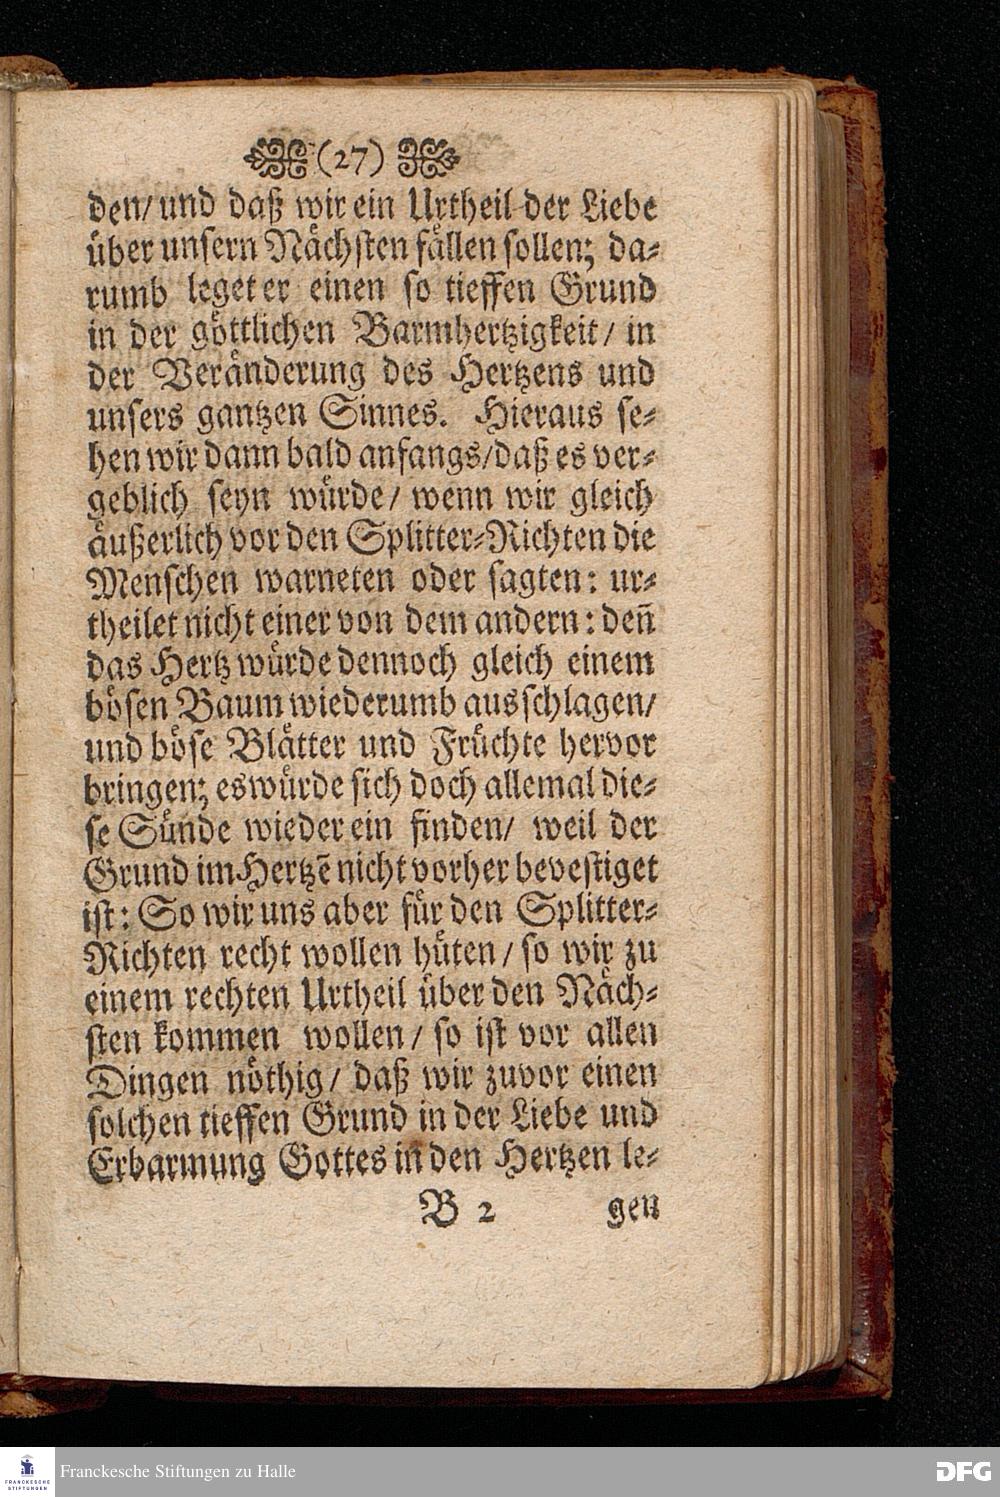 (27)
den/ und daß wir ein Urtheil der Liebe
über unsern Nächsten fällen sollen; da-
rumb leget er einen so tieffen Grund
in der göttlichen Barmhertzigkeit/ in
der Veränderung des Hertzens und
unsers gantzen Sinnes. Hieraus se-
hen wir dann bald anfangs/ daß es ver-
geblich seyn würde/ wenn wir gleich
äußerlich vor den Splitter-Richten die
Menschen warneten oder sagten: ur-
theilet nicht einer von dem andern: deñ
das Hertz würde dennoch gleich einem
bösen Baum wiederumb ausschlagen/
und böse Blätter und Früchte hervor
bringen; es würde sich doch allemal die-
se Sünde wieder ein finden/ weil der
Grund im Hertzē nicht vorher bevestiget
ist: So wir uns aber für den Splitter-
Richten recht wollen hüten/ so wir zu
einem rechten Urtheil über den Näch-
sten kommen wollen/ so ist vor allen
Dingen nöthig/ daß wir zuvor einen
solchen tieffen Grund in der Liebe und
Erbarmung Gottes in den Hertzen le-
B 2 gen
FRANCKESCHE
STIFTUNGEN
Franckesche Stiftungen zu Halle
DFG